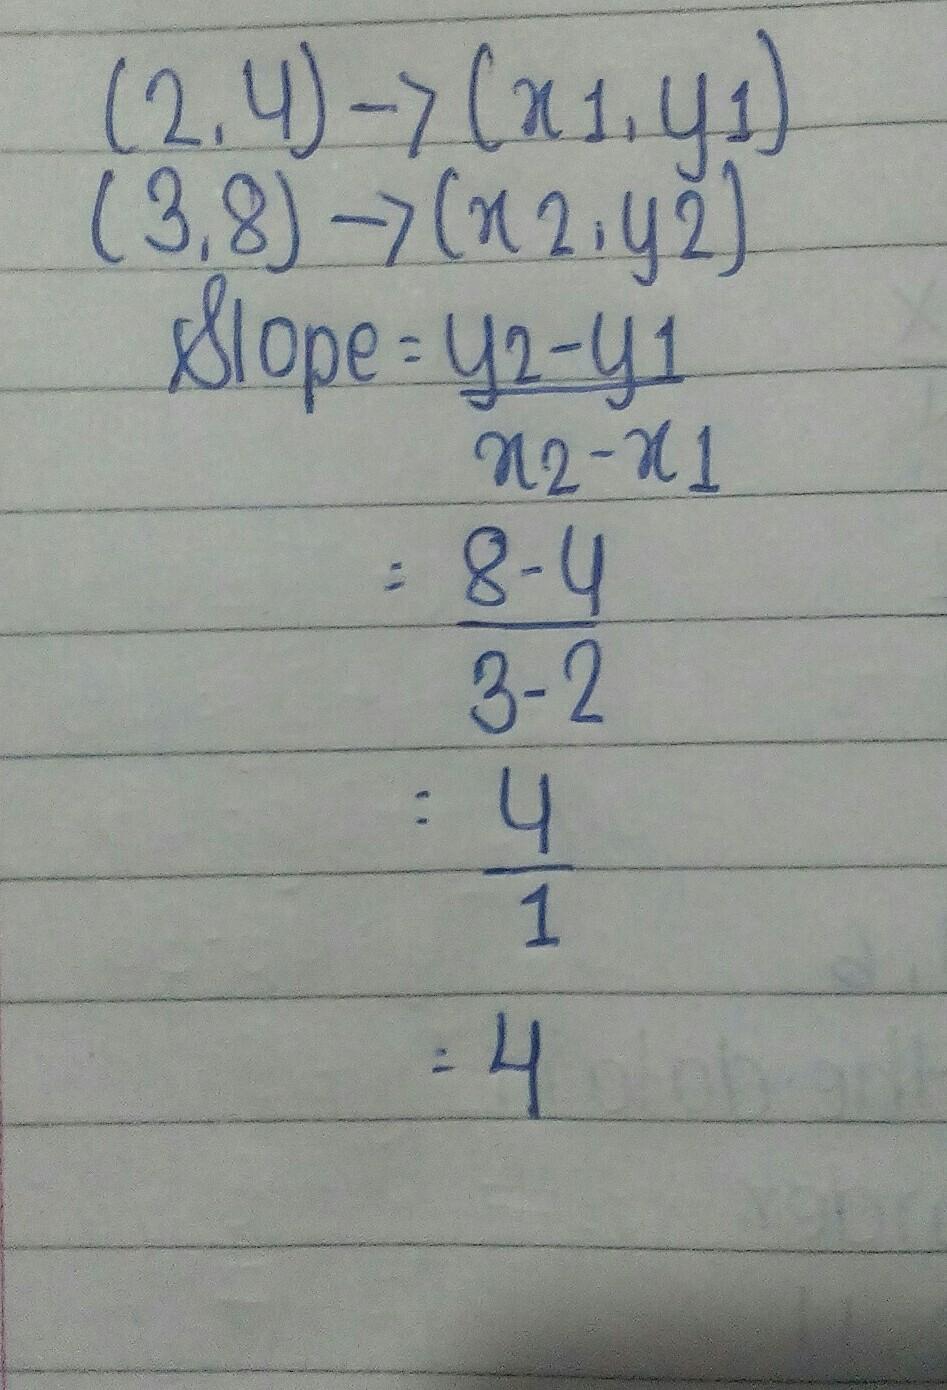 (2,4)->(x1,y1)
(3,8)->(x2,y2)
Slope=y2-y1
x2-x1
= 8-4
3-2
= 4
1
= 4